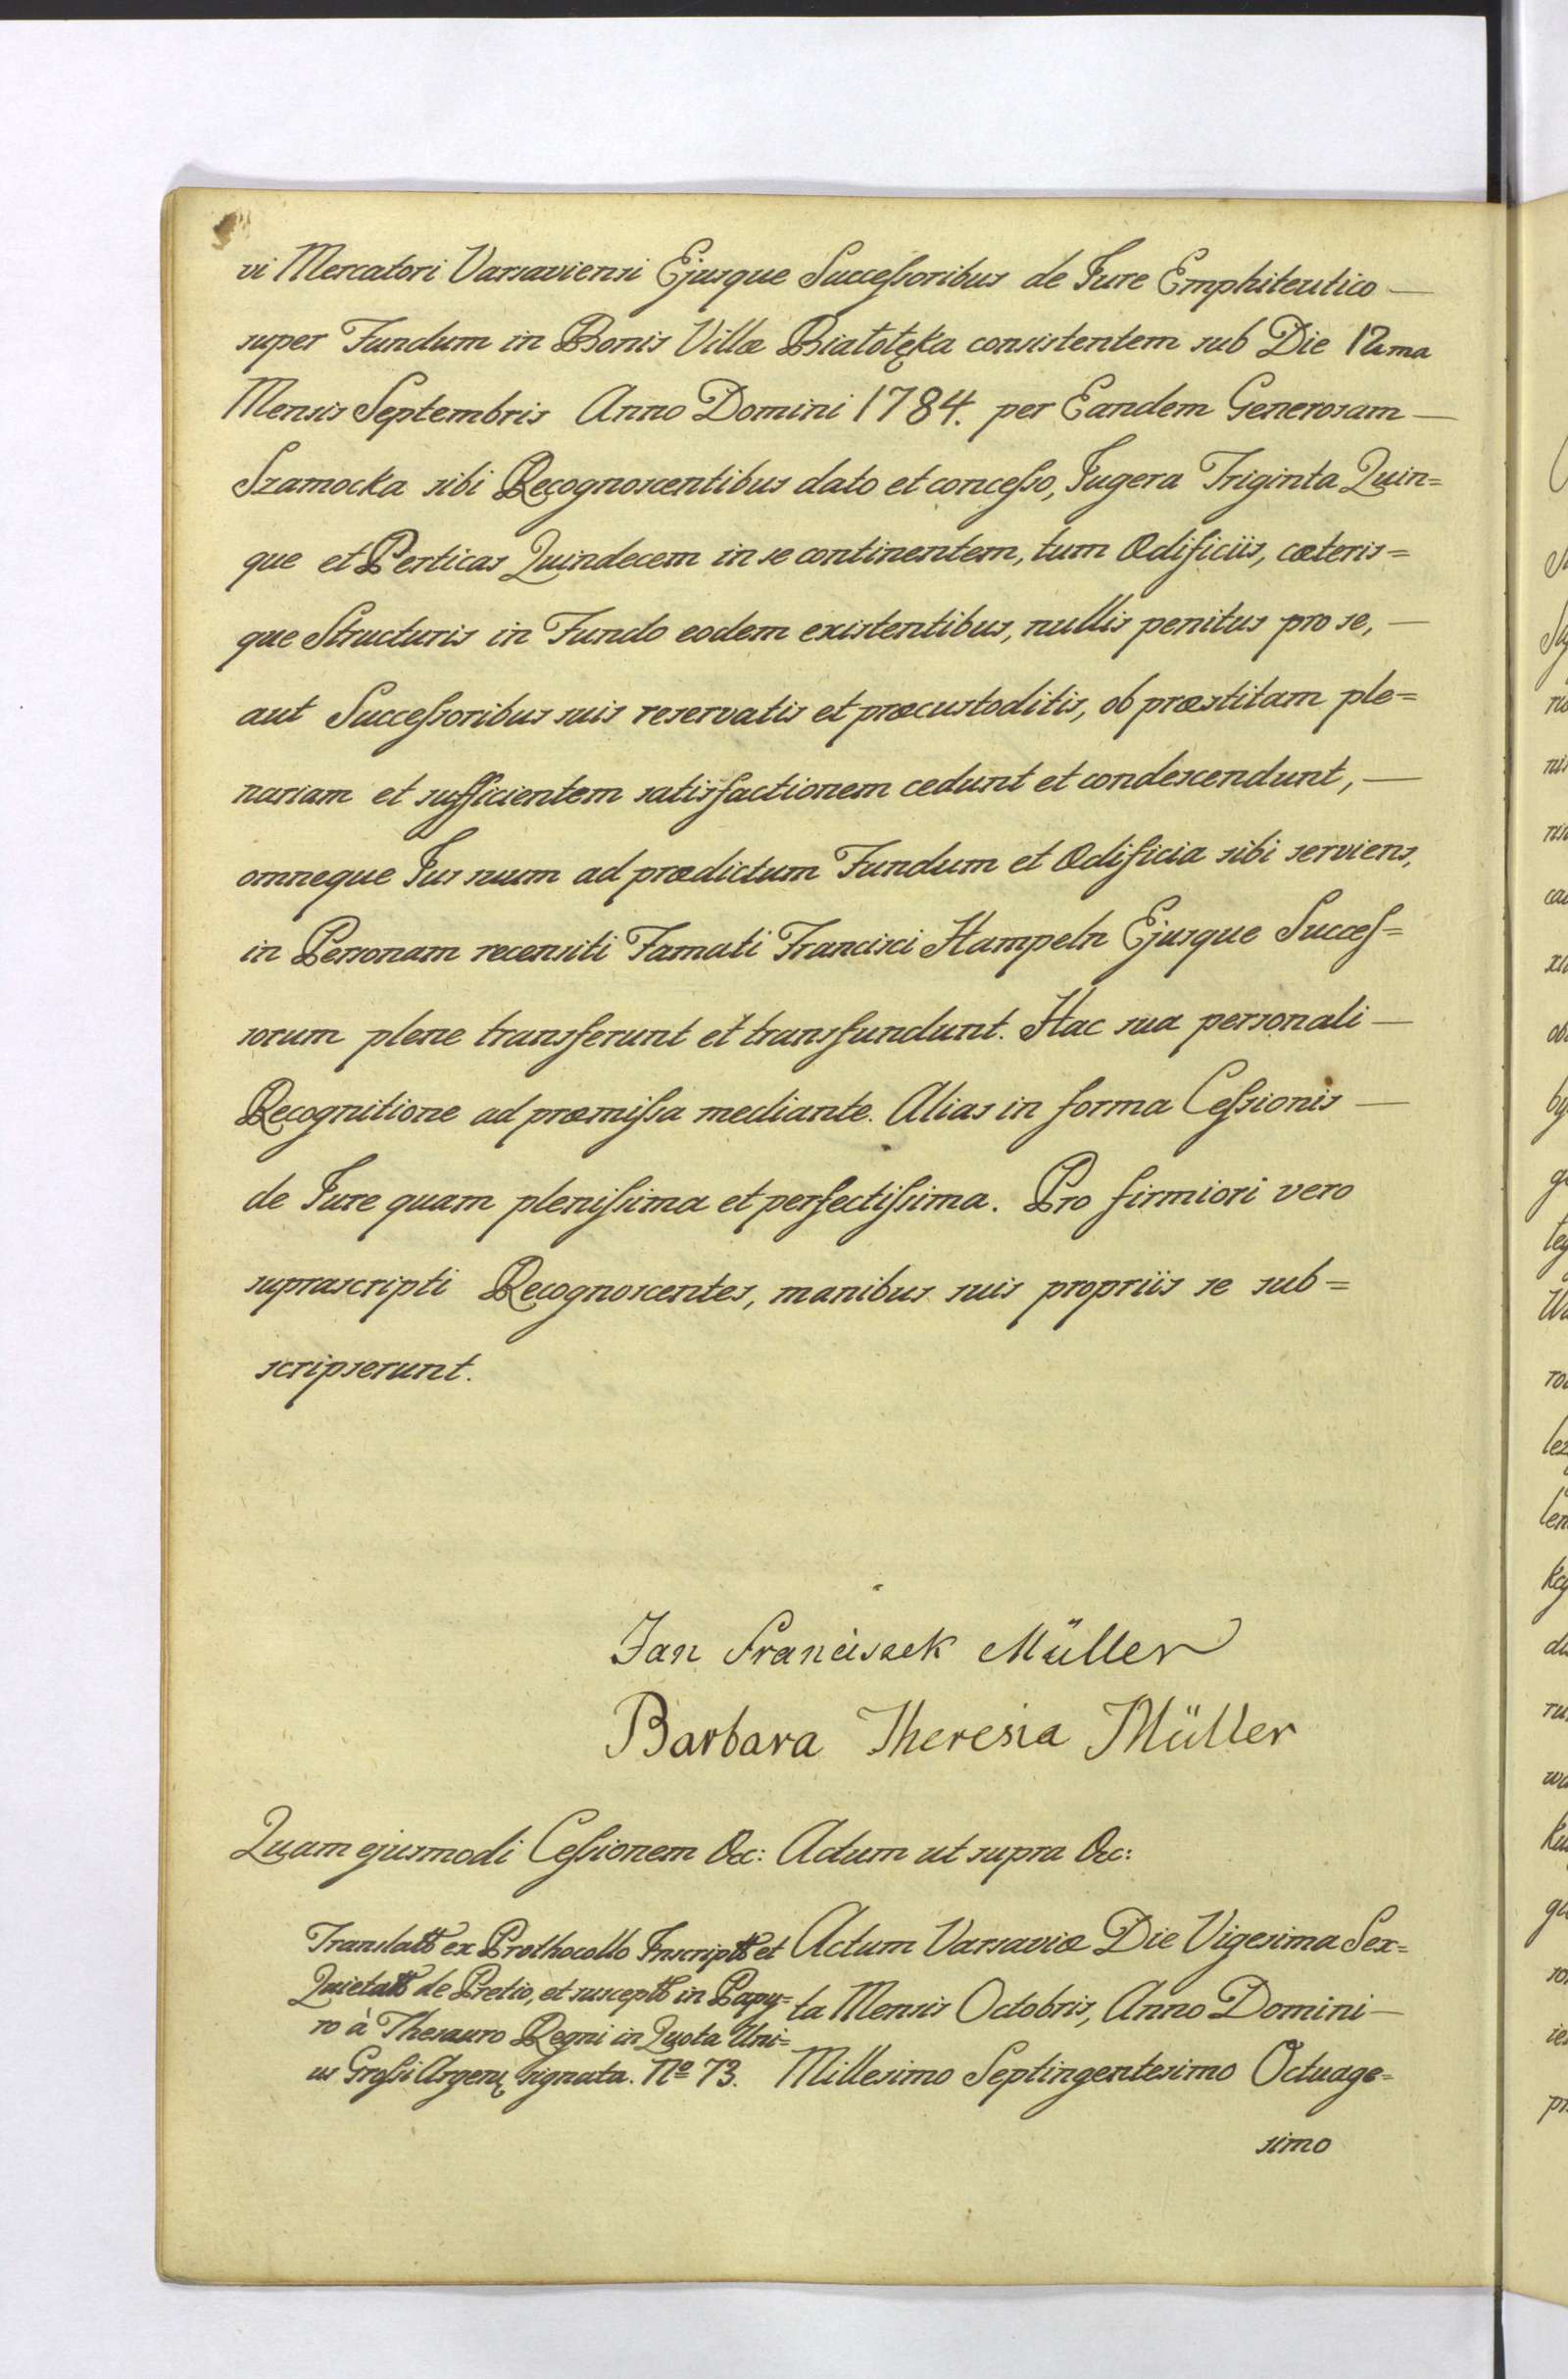 vi Mercatori Varsaviensi Ejusque Successoribus de Jure Emphiteutico —
super Fundum in Bonis Villæ Białołęka consistentem sub Die 12ma
Mensis Septembris Anno Domini 1784. per Eandem Generosam —
Szamocka sibi Recognoscentibus dato et concesso, Jugera Triginta Quin=
que et Perticas Quindecem in se continentem, tum Ædificiis, cæteris=
que Structuris in Fundo eodem existentibus, nullis penitus pro se, —
aut Successoribus suis reservatis et præcustoditis, ob præstitam ple=
nariam et sufficientem satisfactionem cedunt et condescendunt, —
omneque Jus suum ad prædictum Fundum et Ædificia sibi serviens,
in Personam recensiti Famati Francisci Hampeln Ejusque Succes=
sorum plene transferunt et transfundunt. Hac sua personali —
Recognitione ad præmissa mediante. Alias in forma Cessionis —
de Jure quam plenissima et perfectissima. Pro firmiori vero
suprascripti Recognoscentes, manibus suis propriis se sub=
scripserunt.
Jan Franciszek Müller
Barbara Theresia Müller
Quam ejusmodi Cessionem &c: Actum ut supra &c:
ex Prothocollo et
de Pretio, et in Papy=
ro à Thesauro Regni in Quota Uni=
us Grossi signata. No 73.
Actum Varsaviæ Die Vigesima Sex=
ta Mensis Octobris, Anno Domini —
Millesimo Septingentesimo Octuage=
simo